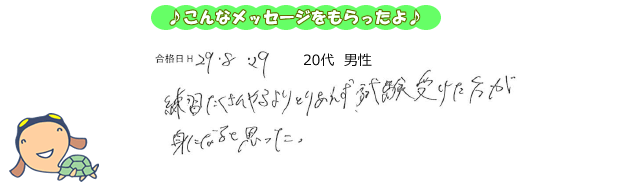 ♪こんなメッセージをもらったよ♪
合格日H 29.8.29 20代 男性
練習たくさんやるよりとりあえず試験受けた方が
身になると思った。